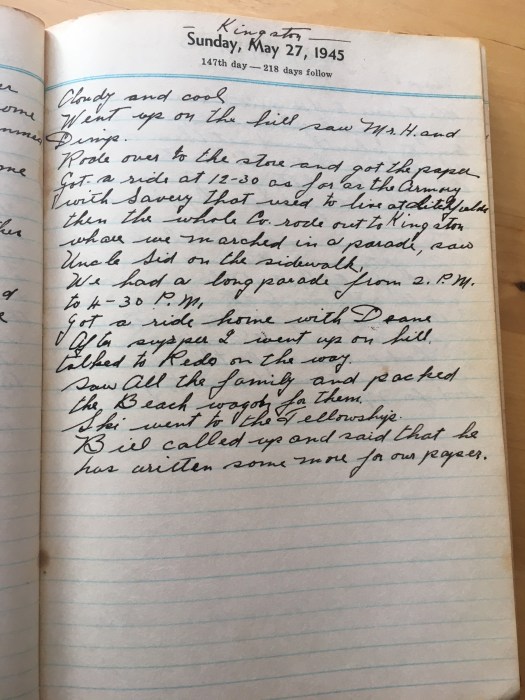 — Kingston —
Sunday, May 27, 1945
147th day — 218 days follow
Cloudy and cool
Went up on the hill saw Mr. H. and
Dimp.
Rode over to the store and got the paper
Got a ride at 12-30 as far as the Armory
with Savery that used to live at
then the whole Co. rode out to Kingston
whare we marched in a parade, saw
Uncle Sid on the sidewalk,
We had a long parade from 2. P.M.
to 4-30 P.M,
Got a ride home with Deane
After supper I went up on hill.
talked to Redo on the way.
Saw All the family and packed
the Beach wagon for them.
Ski went to the Fellowship.
Bill called up and said that he
has written some more for our paper.